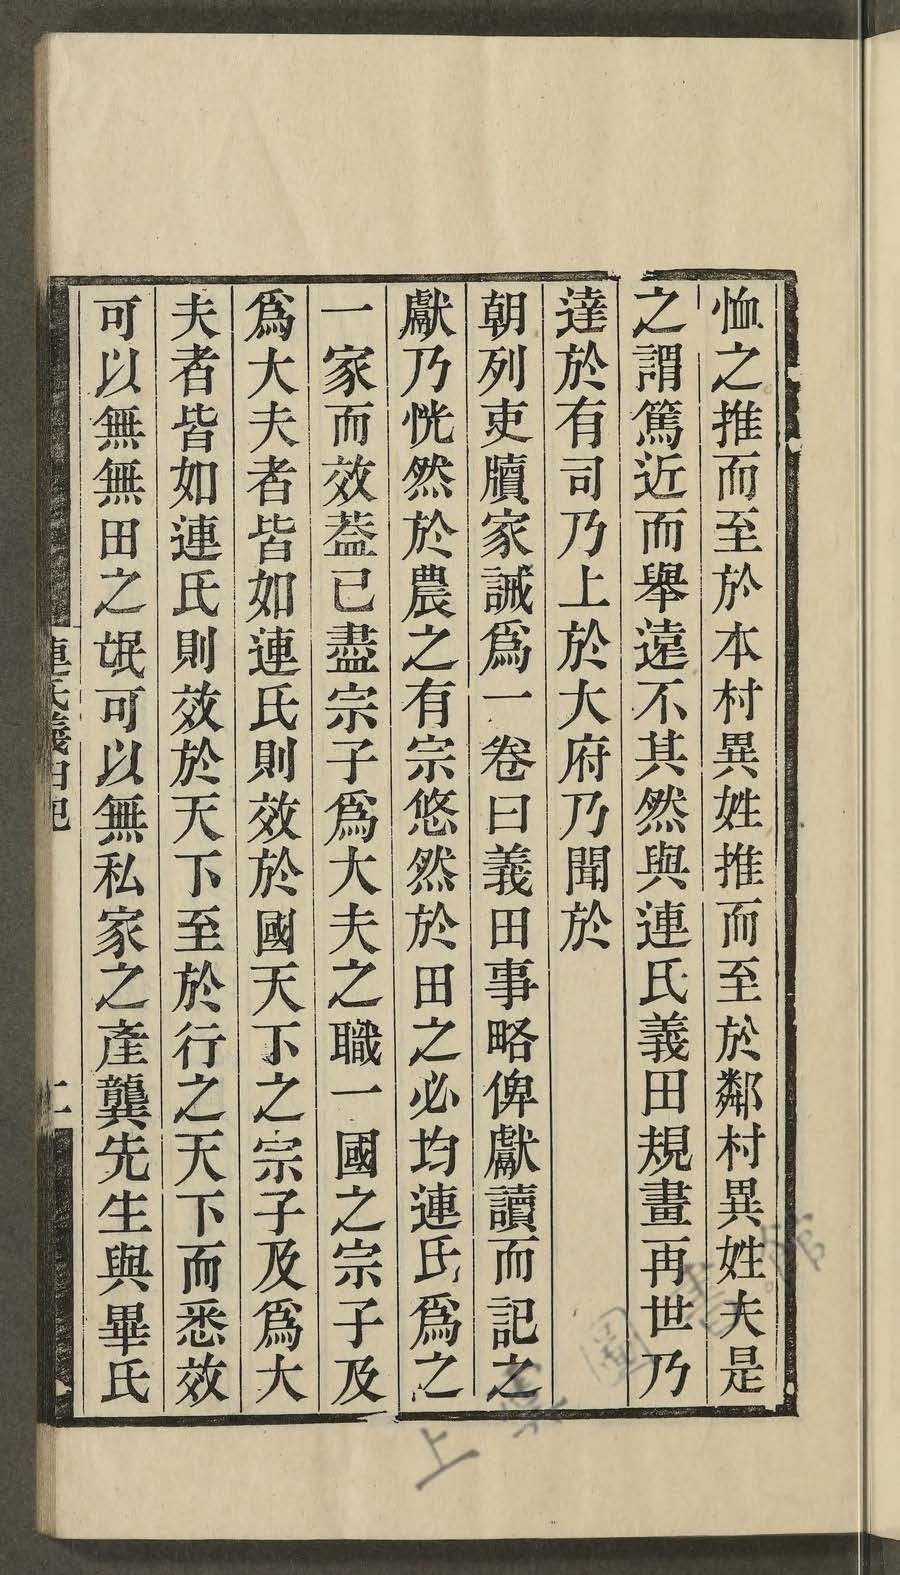 恤之推而至於本村異姓推而至於鄰村異姓夫是
之謂篤近而舉遠不其然與連氏義田規畫再世乃
達於有司乃上於大府乃聞於
朝列吏牘家誡爲一卷曰義田事略俾獻讀而記之
獻乃恍然於農之有宗悠然於田之必均連氏爲之
一家而效葢已盡宗子爲大夫之職一國之宗子及
爲大夫者皆如連氏則效於國天下之宗子及爲大
夫者皆如連氏則效於天下至於行之天下而悉效
可以無無田之氓可以無私家之產龔先生與畢氏
連氏義田記
二
上海圖書館